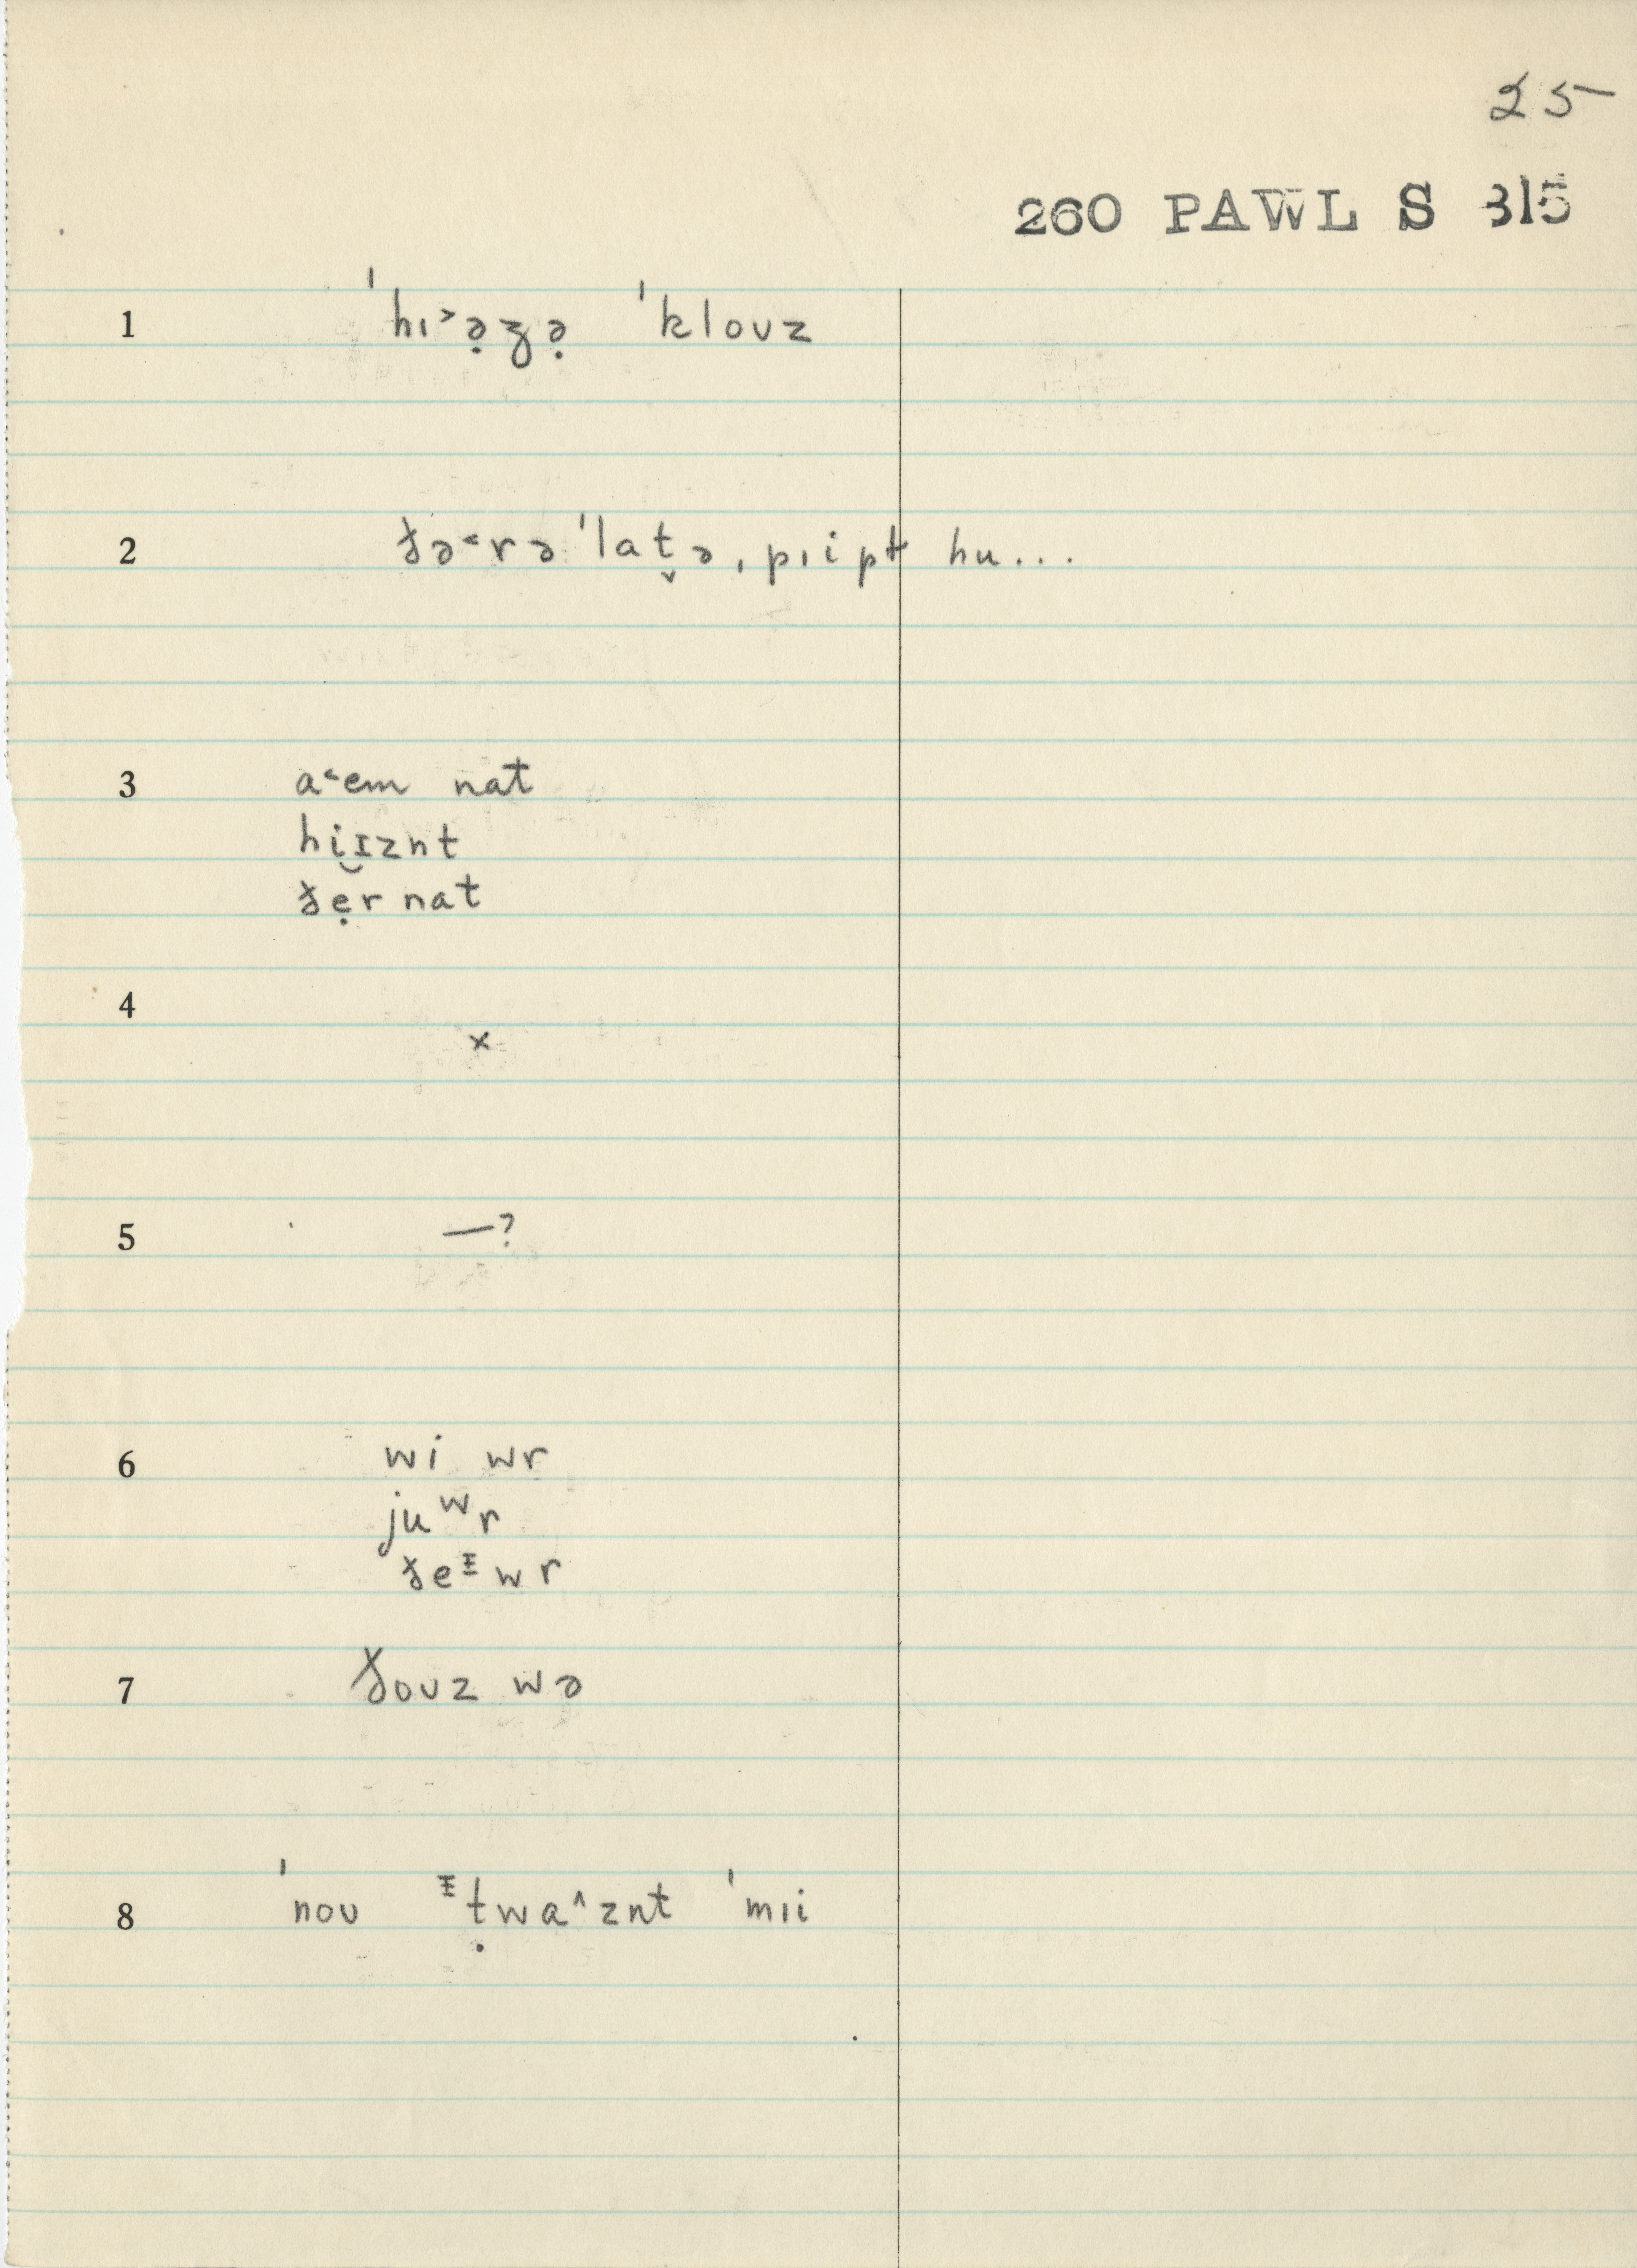 25
260 PAWL S 315
1 ˈˈhɪ˃ə̣ʒə̣ ˈˈklouz
2 ðə˂rə ˈlat̬ə, pɪipɫ hu...
3 a˂em nat
hi̮ɪznt
ðẹr nat
4 x
5 —?
6 wi wr
juʷr
ðeᵻwr
7 ðouz wə
8 ˈˈnou ᵻṭwa^znt ˈˈmɪi